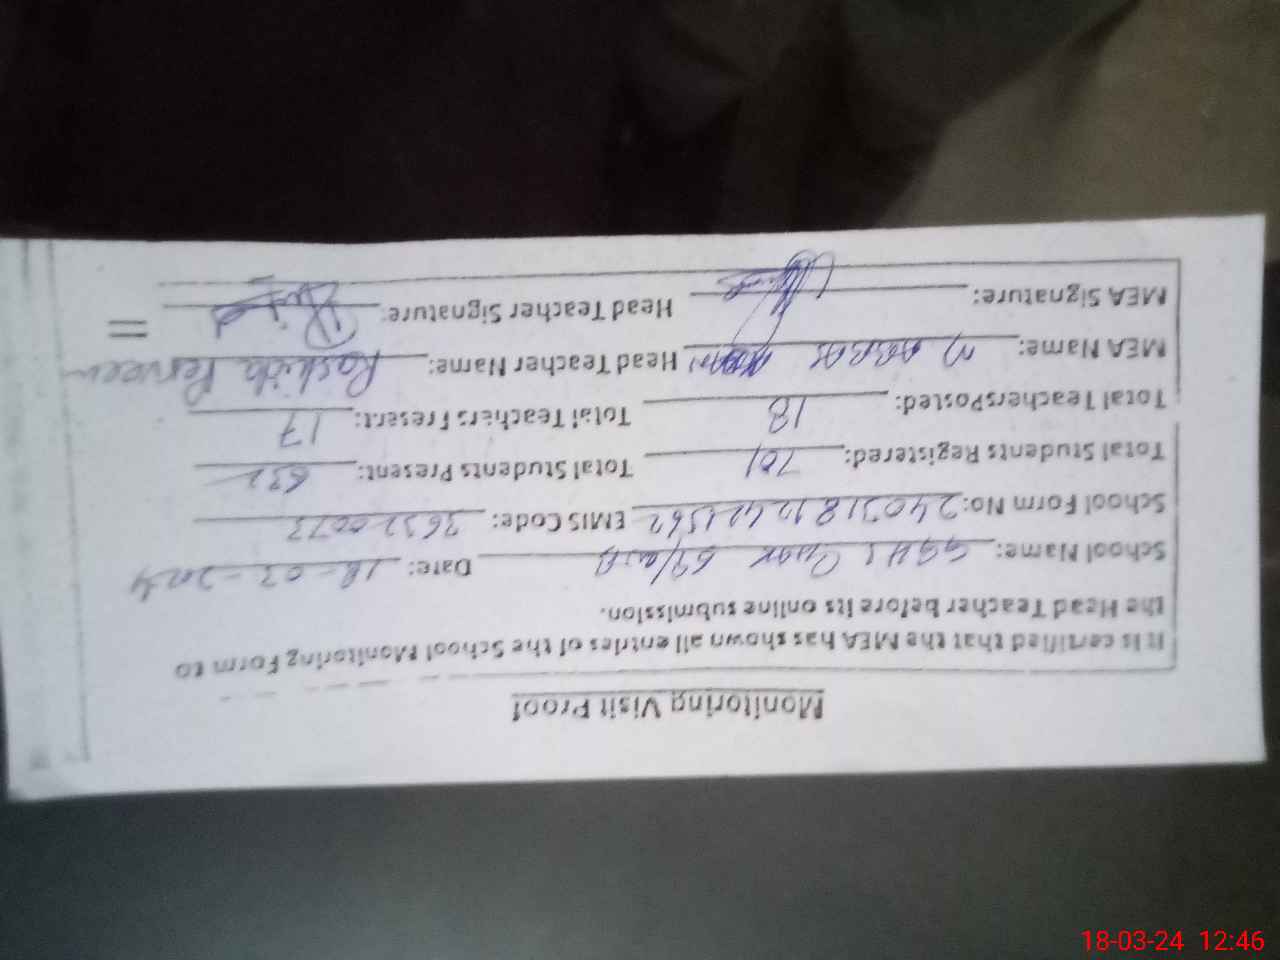 Monitoring Visit Proof
It is certified that the MEA has shown all entries of the School Monitoring Form to
the Head Teacher before its online submission.
School Name: GGHS Date: 18-03-2024
School Form No: EMIS Code: 36320073
Total Students Registered: 701 Total Students Present: 632
Total Teachers Posted: 18 Total Teachers Present: 17
MEA Name: M ABBAS KHAN Head Teacher Name: Rashida Perveen
MEA Signature: Head Teacher Signature:
18-03-24 12:46